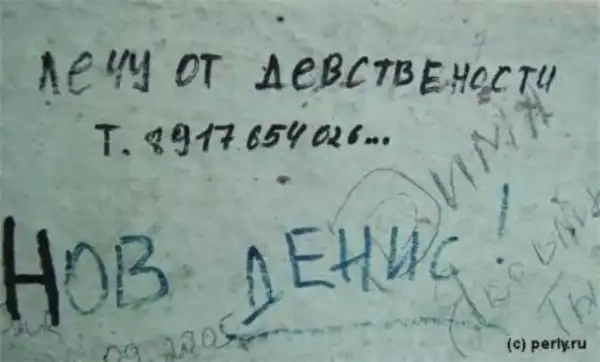 лечу от девствености
Т. 8917 654 026...
Нов Денис!
Дима
Ты
09.2005
(c) perly.ru